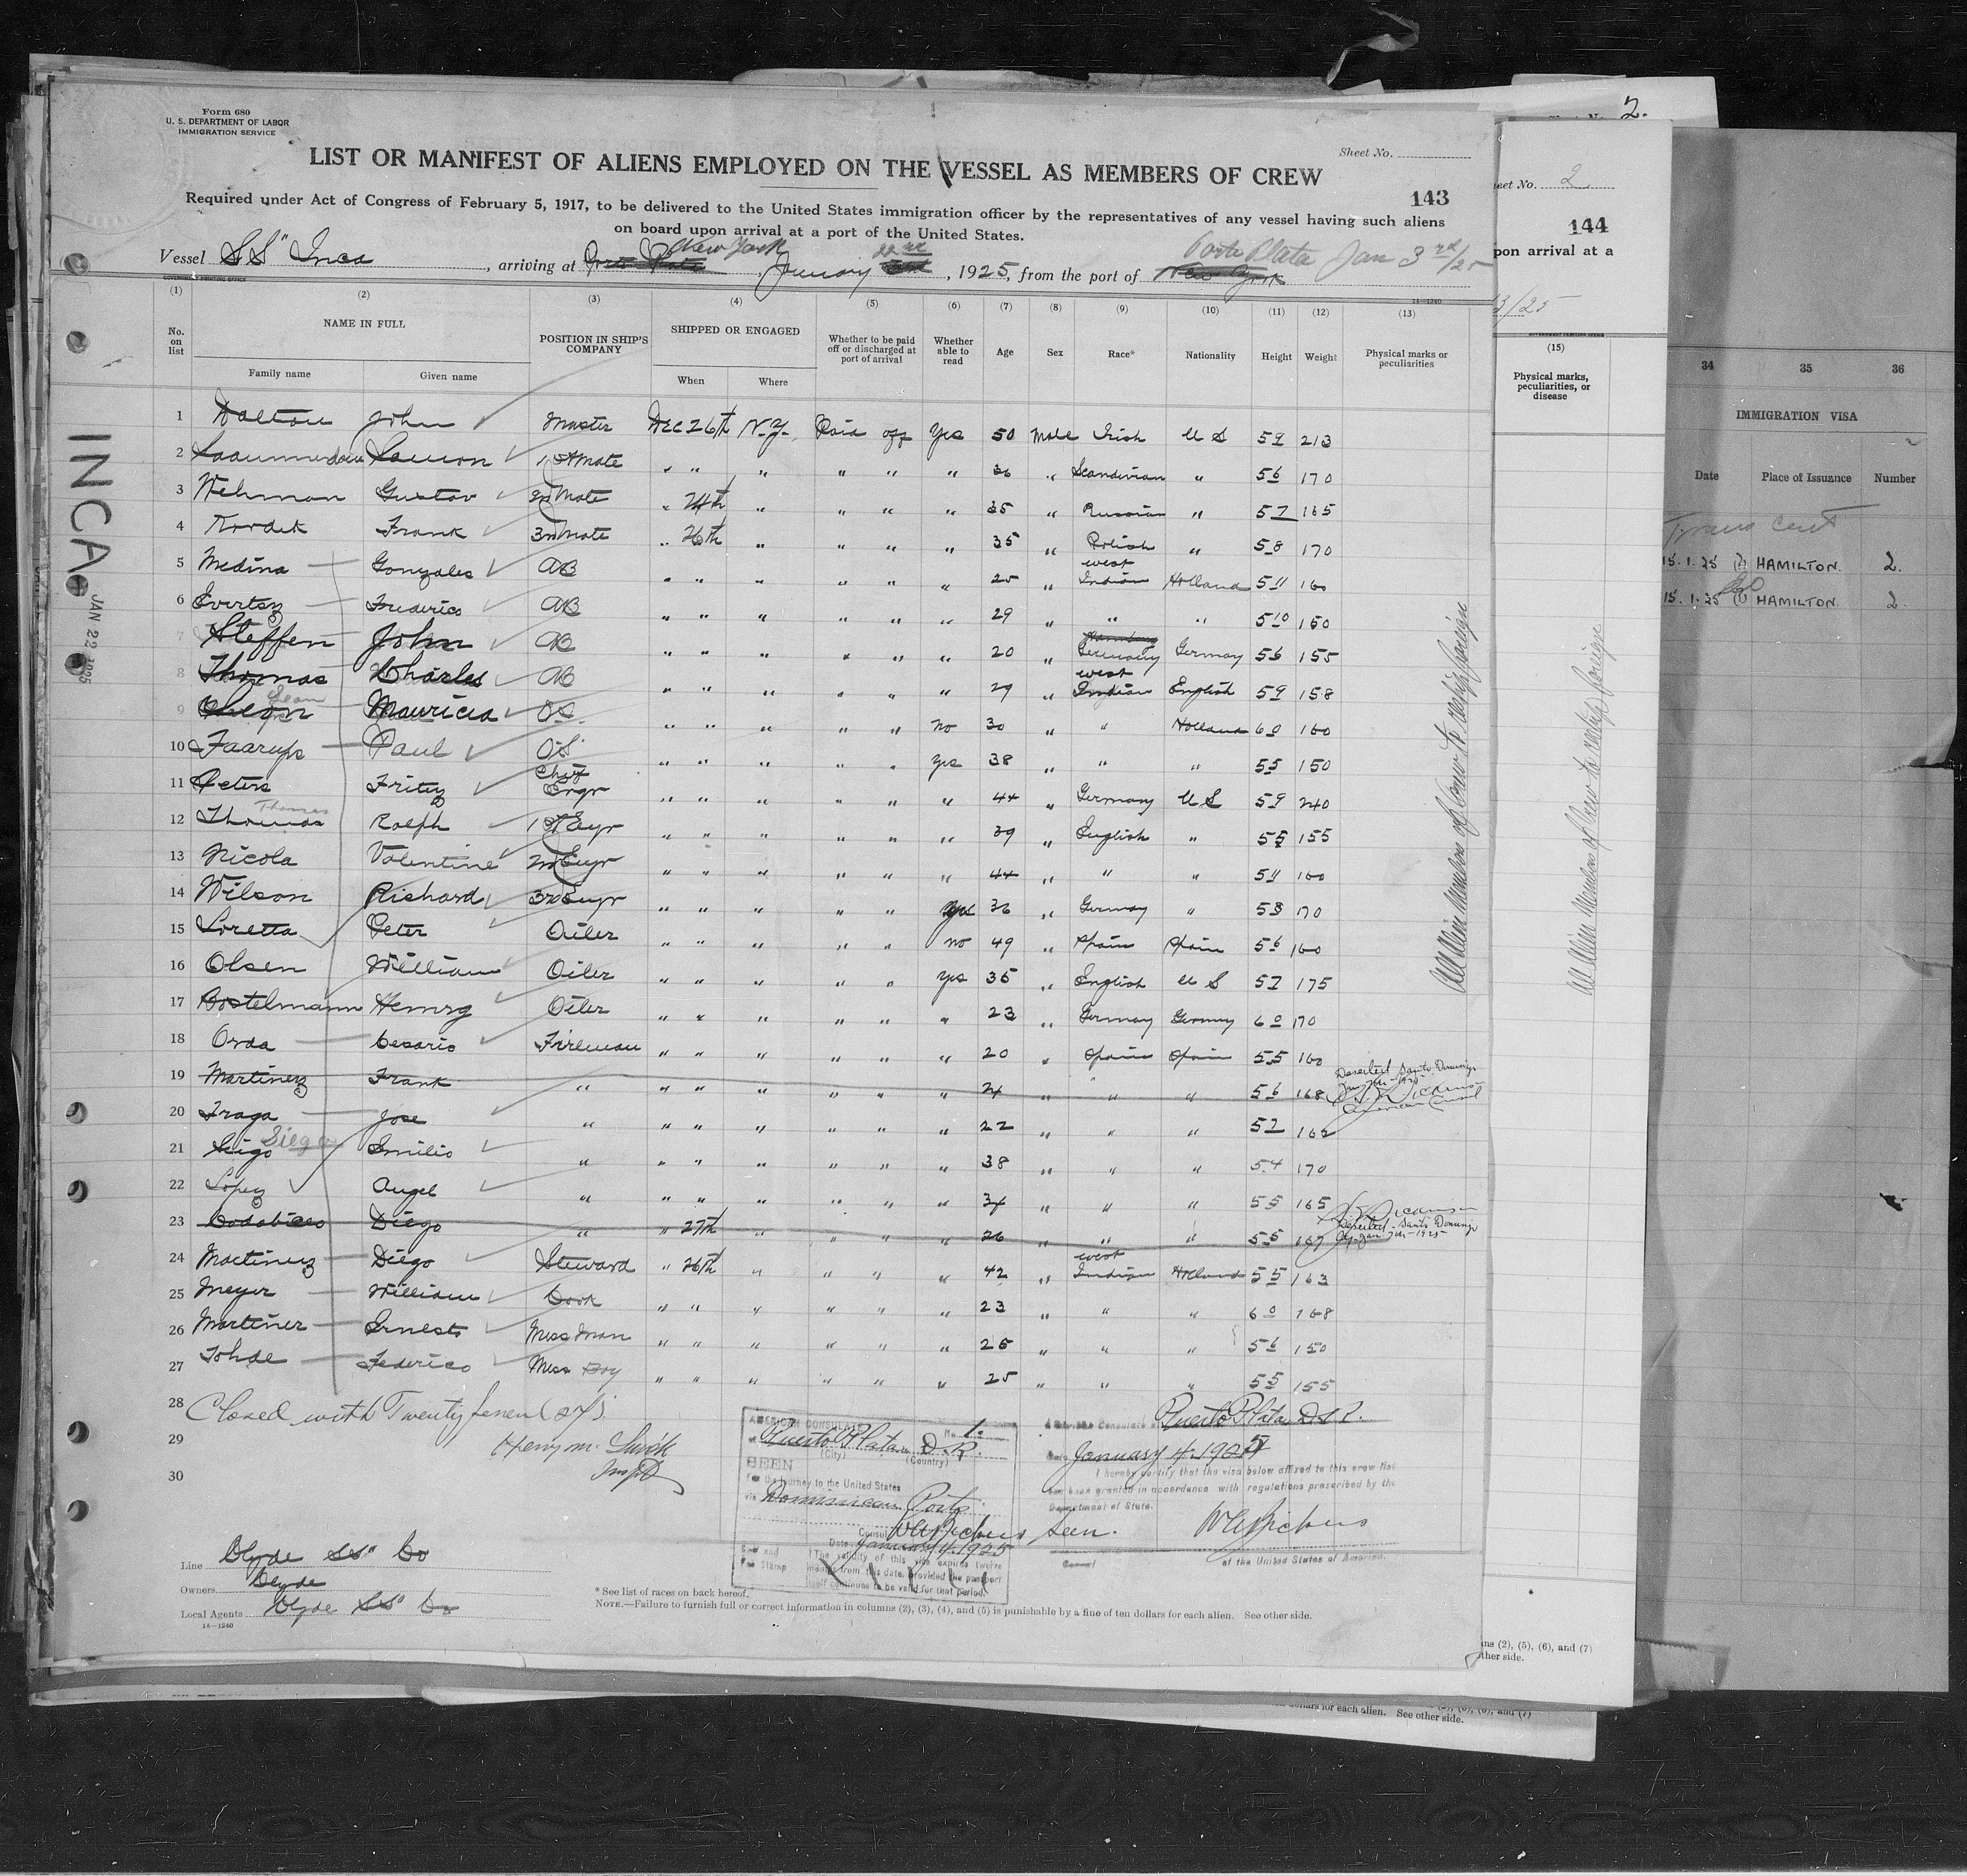 Form 680
U. S. DEPARTMENT OF LABOR
IMMIGRATION SERVICE
Sheet No.
LIST OR MANIFEST OF ALIENS EMPLOYED ON THE VESSEL AS MEMBERS OF CREW
143
Required under Act of Congress of February 5, 1917, to be delivered to the United States immigration officer by the representatives of any vessel having such aliens
on board upon arrival at a port of the United States.
Vessel SS" Inca, arriving at Porto Plata New York, January 22nd, 1925, from the port of New York Porto Plata Jan 3rd/25
GOVERNMENT PRINTING OFFICE 14—1240
(1) (2) (3) (4) (5) (6) (7) (8) (9) (10) (11) (12) (13)
No. on list NAME IN FULL POSITION IN SHIP'S COMPANY SHIPPED OR ENGAGED Whether to be paid off or discharged at port of arrival Whether able to read Age Sex Race* Nationality Height Weight Physical marks or peculiarities
Family name Given name When Where
1 Dalton John Master Dec 26th N.Y. Paid off Yes 50 Male Irish U S 5 9 213
2 1st Mate " " " " " " 36 " Scandivian " 5 6 170
3 Wehman Gustav 2nd Mate " 24th " " " " 35 " Russian " 5 7 165
4 Kordek Frank 3rd Mate " 26th " " " " 35 " Polish " 5 8 170
5 Medina Gonzales AB " " " " " " 25 " West Indian Holland 5 11 160
6 Evertsz Frederico AB " " " " " " 29 " " " 5 10 150
7 Steffen John AB " " " " " " 20 " Germany Germany 5 6 155
8 Thomas Charles AB " " " " " " 29 " West Indian English 5 9 158
9 Leon Mauricia OS. " " " " " No 30 " " Holland 6 0 160
10 Faarups Paul OS " " " " " Yes 38 " " " 5 5 150
11 Peters Fritz Chief Engr " " " " " " 44 " Germany U S 5 9 240
12 Thomas Thomas Ralph 1st Engr " " " " " " 39 " English " 5 5 155
13 Nicola Valentine 2nd Engr " " " " " " 44 " " " 5 11 160
14 Wilson Richard 3rd Engr " " " " " Yes 36 " Germay " 5 8 170
15 Loretta Peter Oiler " " " " " No 49 " Spain Spain 5 6 160
16 Olsen William Oiler " " " " " Yes 35 " English U S 5 7 175
17 Bostelmann Henrsg Oiler " " " " " " 23 " Germay Germny 6 0 170
18 Orda Cesario Fireman " " " " " " 20 " Spain Spain 5 5 160
19 Martinez Frank " " " " " " " 24 " " " 5 6 168 Deserted Santo Domingo Jan 7th-1925 American Consul
20 Fraga Jose " " " " " " " 22 " " " 5 7 162
21 Siego Emilio " " " " " " " 38 " " " 5 4 170
22 Lopez Angel " " " " " " " 34 " " " 5 5 165
23 Diego " " 27th " " " " 26 " " " 5 5 167 Deserted Santo Domingo Jan 7th-1925
24 Martinez Diego Steward " 26th " " " " 42 " West Indian Holland 5 5 163
25 Meyer William Cook " " " " " " 23 " " " 6 0 168
26 Martiner Ernesto Mess Man " " " " " " 26 " " " 5 6 150
27 Tohde Federico Mess Boy " " " " " " 25 " " " 5 5 155
28 Closed with Twenty seven (27).
29 Henry M.
30 Insp
All Alien Members of Crew to reship foreign
INCA
JAN 22 1925
AMERICAN CONSULATE No. 1.
at Puerto Plata, D.R.
(City) (Country)
SEEN
For the journey to the United States
via Dominican Ports
Consul
Date January 4, 1925
The validity of this visa expires twelve
months from this date, provided the passport
itself continues to be valid for that period.
Seal and
Fee Stamp
American Consulate at Puerto Plata D.R.
Date January 4, 1925
I hereby certify that the visa below affixed to this crew list
has been granted in accordance with regulations prescribed by the
Department of State.
Seen.
Consul of the United States of America.
Line Clyde SS" Co
Owners Clyde
Local Agents Clyde SS" Co
14—1240
*See list of races on back hereof.
NOTE.—Failure to furnish full or correct information in columns (2), (3), (4), and (5) is punishable by a fine of ten dollars for each alien. See other side.
2.
eet No. 2
144
pon arrival at a
3/25
(15)
Physical marks, peculiarities, or disease
All Alien Members of Crew to reship foreign
ns (2), (5), (6), and (7)
ther side.
dollars for each alien. See other side.
34 35 36
IMMIGRATION VISA
Date Place of Issuance Number
Trans cert
15.1.25 HAMILTON. 2.
15.1.25 HAMILTON. 2.